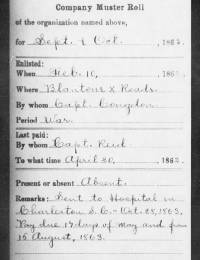 Company Muster Roll
of the organization named above,
for Sept. & Oct. , 1863.
Enlisted:
When Feb. 10, , 186
Where Blantons X Roads.
By whom Capt. Congdon
Period War.
Last paid:
By whom Capt. Reid
To what time April 30, , 1863.
Present or absent Absent.
Remarks: Sent to Hospital in
Charleston S.C. - Oct. 28, 1863.
Pay due 17 days of May and from
15 August, 1863.